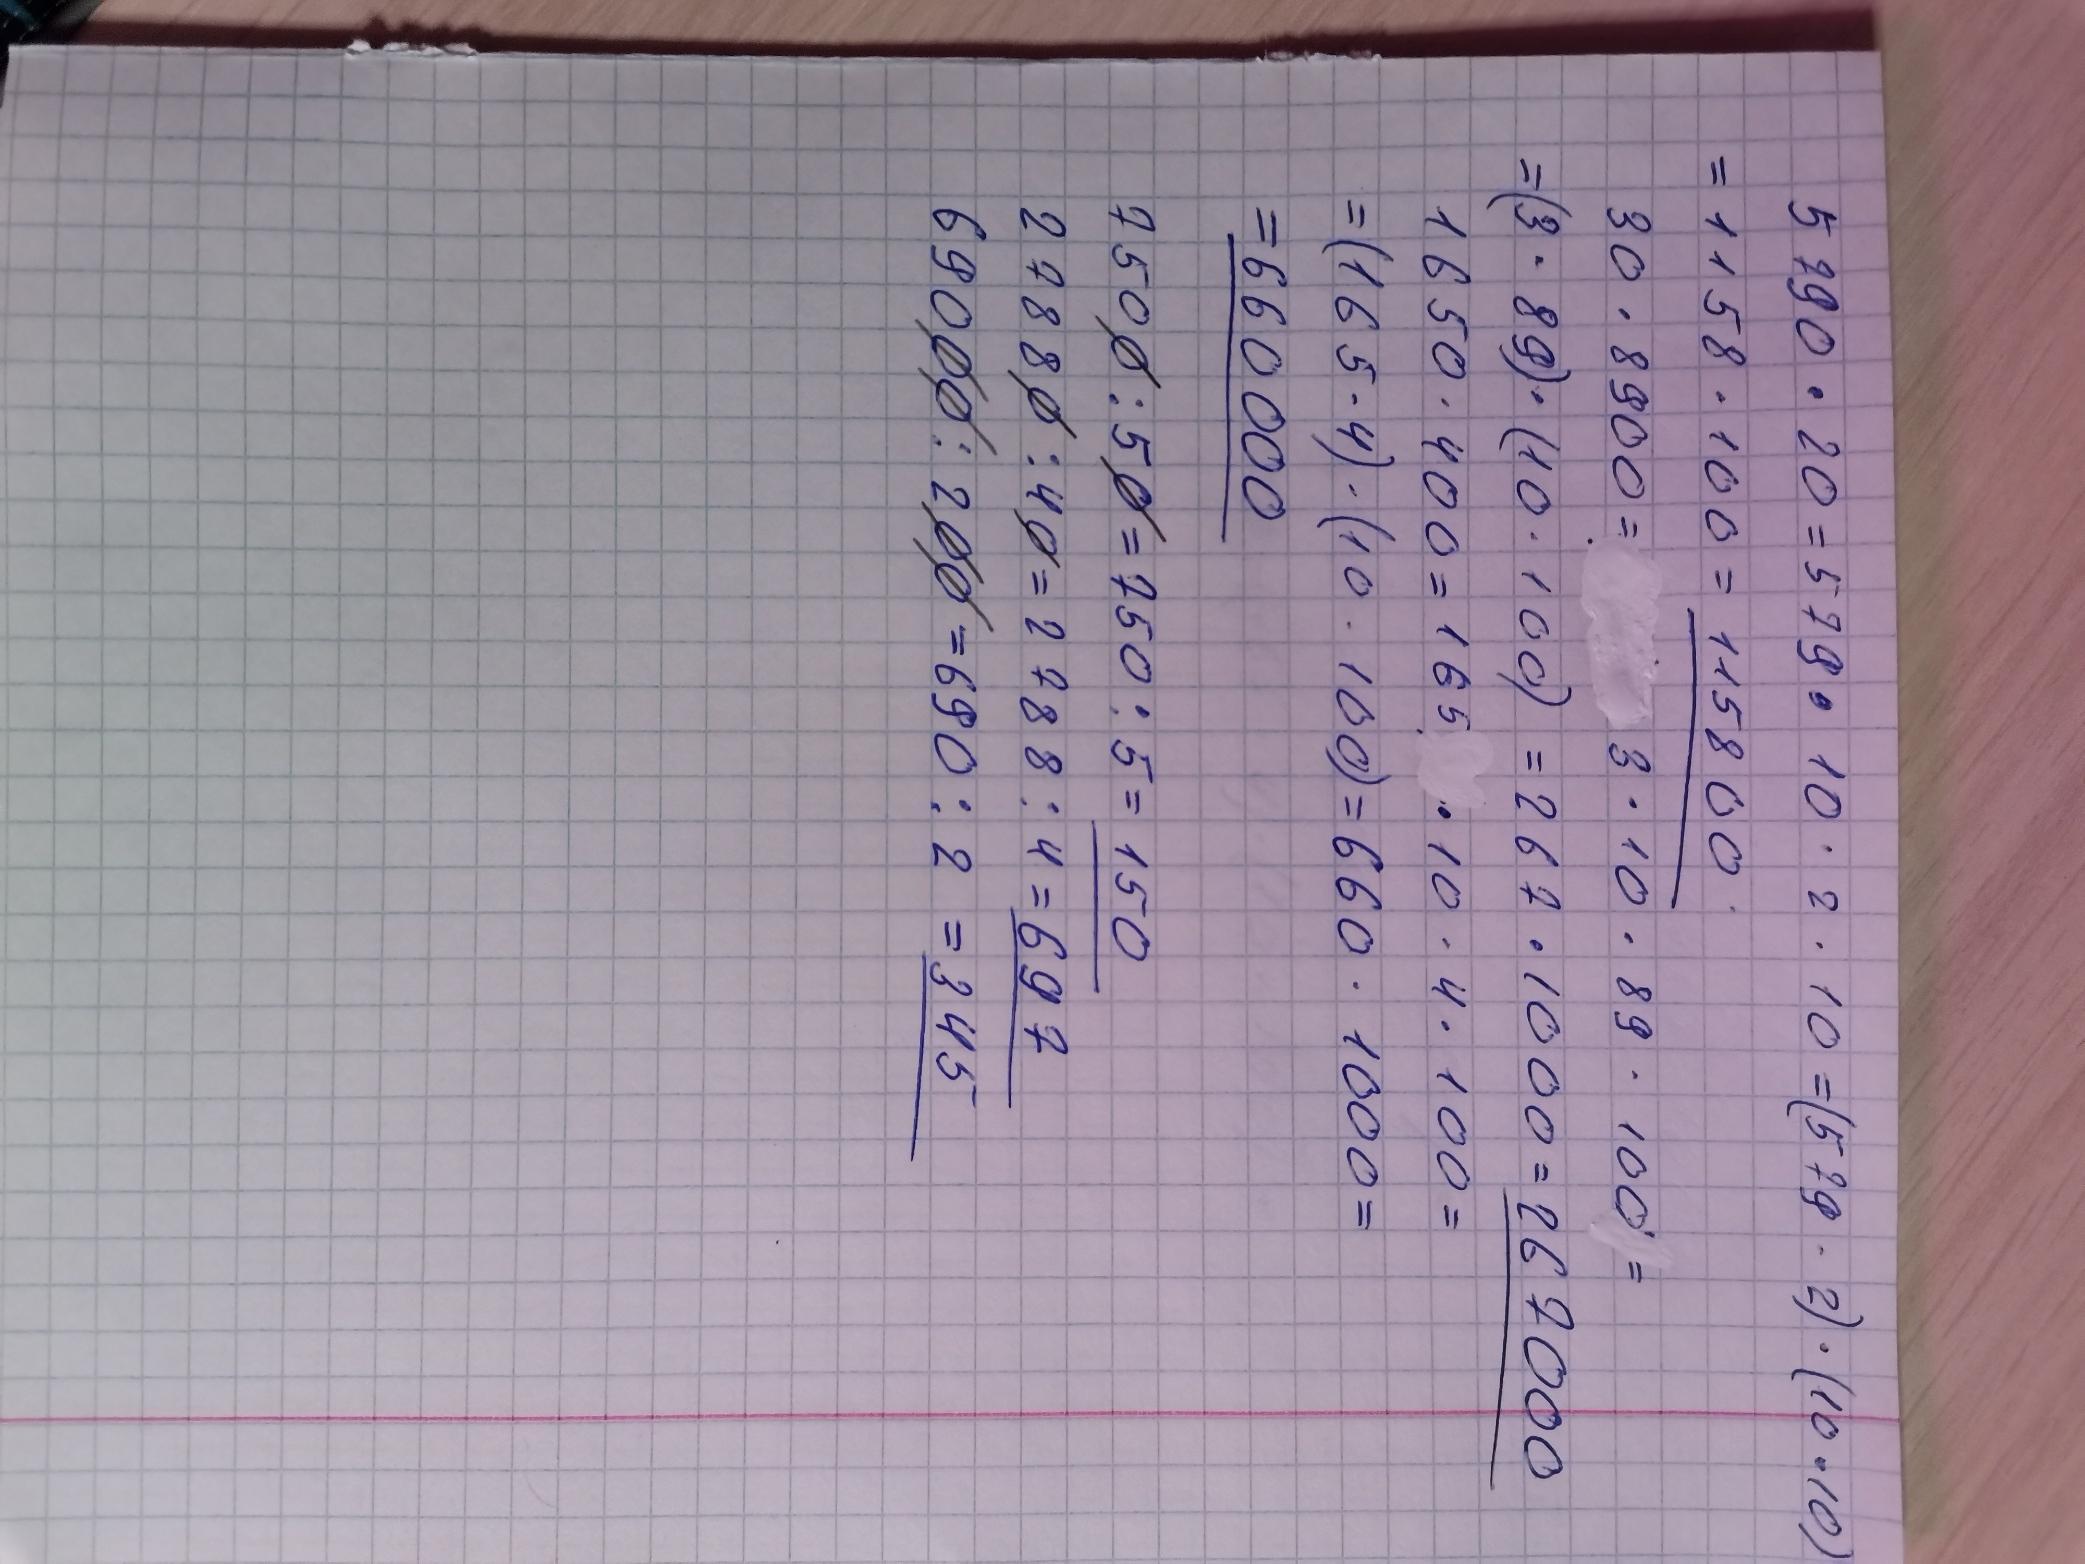 5790 · 20 = 579 · 10 · 2 · 10 = (579 · 2) · (10 · 10)
= 1158 · 100 = 115800
30 · 8900 = 3 · 10 · 89 · 100 =
= (3 · 89) · (10 · 100) = 267 · 1000 = 267000
1650 · 400 = 165 · 10 · 4 · 100 =
= (165 · 4) · (10 · 100) = 660 · 1000 =
= 660000
7500 : 50 = 750 : 5 = 150
27880 : 40 = 2788 : 4 = 697
69000 : 200 = 690 : 2 = 345